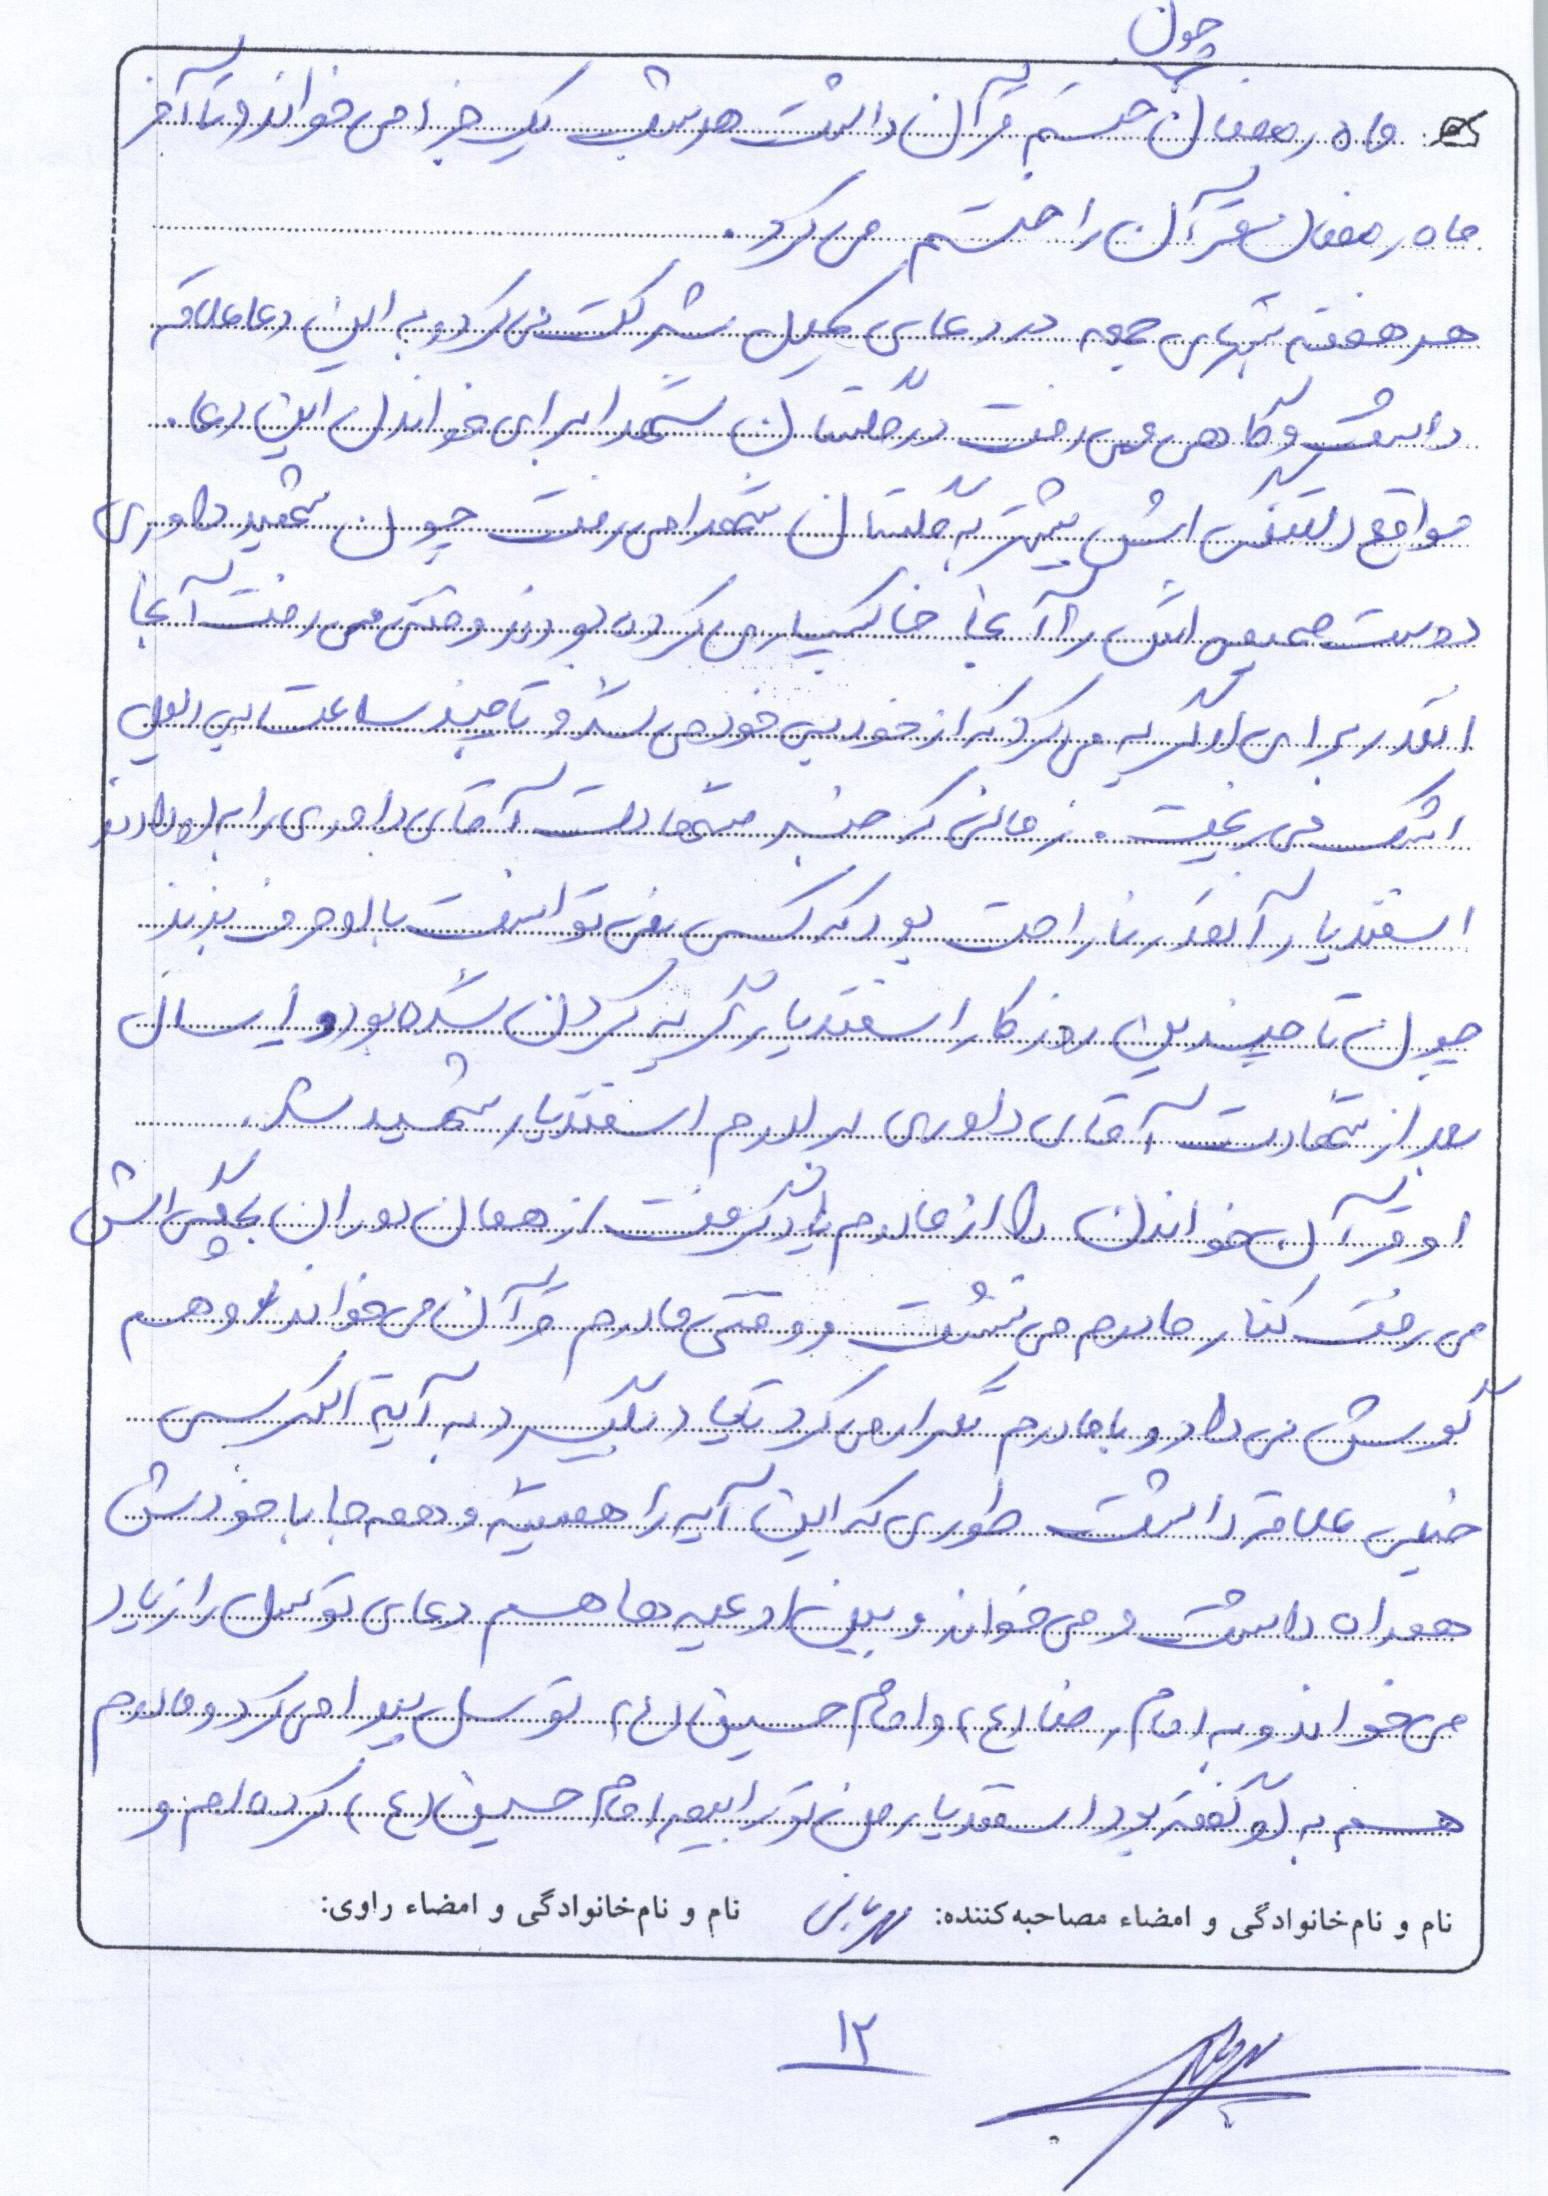 چون
ماه رمضان ختم قرآن داشت هر شب یک جزء را می خواند و تا آخر
ماه رمضان قرآن را ختم می کرد.
هر هفته شبهای جمعه در دعای کمیل شرکت می کرد و به این دعا علاقه
داشت و گاهی می رفت در گلستان شهدا برای خواندن این دعا.
مواقع دلتنگی اش بیشتر به گلستان شهدا می رفت چون شهید داوری
دوست صمیمی اش را آنجا خاکسپاری کرده بودند وقتی می رفت آنجا
انقدر برای او گریه می کرد که از خود بی خود می شد و تا چند ساعت برای او
اشک می ریخت. زمانی که خبر شهادت آقای داوری را به او دادند
اسفندیار آنقدر ناراحت بود که کسی نمی توانست با او حرف بزند
چون تا چندین روز کار اسفندیار گریه کردن شده بود و ۱ سال
بعد از شهادت آقای داوری برادرم اسفندیار شهید شد.
او قرآن خواندن را از مادرم یاد گرفت از همان دوران بچگی اش
می رفت کنار مادرم می نشست و وقتی مادرم قرآن می خواند او هم
گوش می داد و با مادرم تکرار می کرد تا یاد بگیرد به آیة الکرسی
خیلی علاقه داشت طوری که این آیه را همیشه و همه جا با خودش
همراه داشت و می خواند و بین ادعیه ها هم دعای توسل را زیاد
می خواند و به امام رضا (ع) و امام حسین (ع) توسل پیدا می کرد و مادرم
هم به او گفته بود اسفندیار من تو را بیمه امام حسین (ع) کرده ام و
نام و نام‌خانوادگی و امضاء مصاحبه‌کننده: نام و نام‌خانوادگی و امضاء راوی:
۱۲